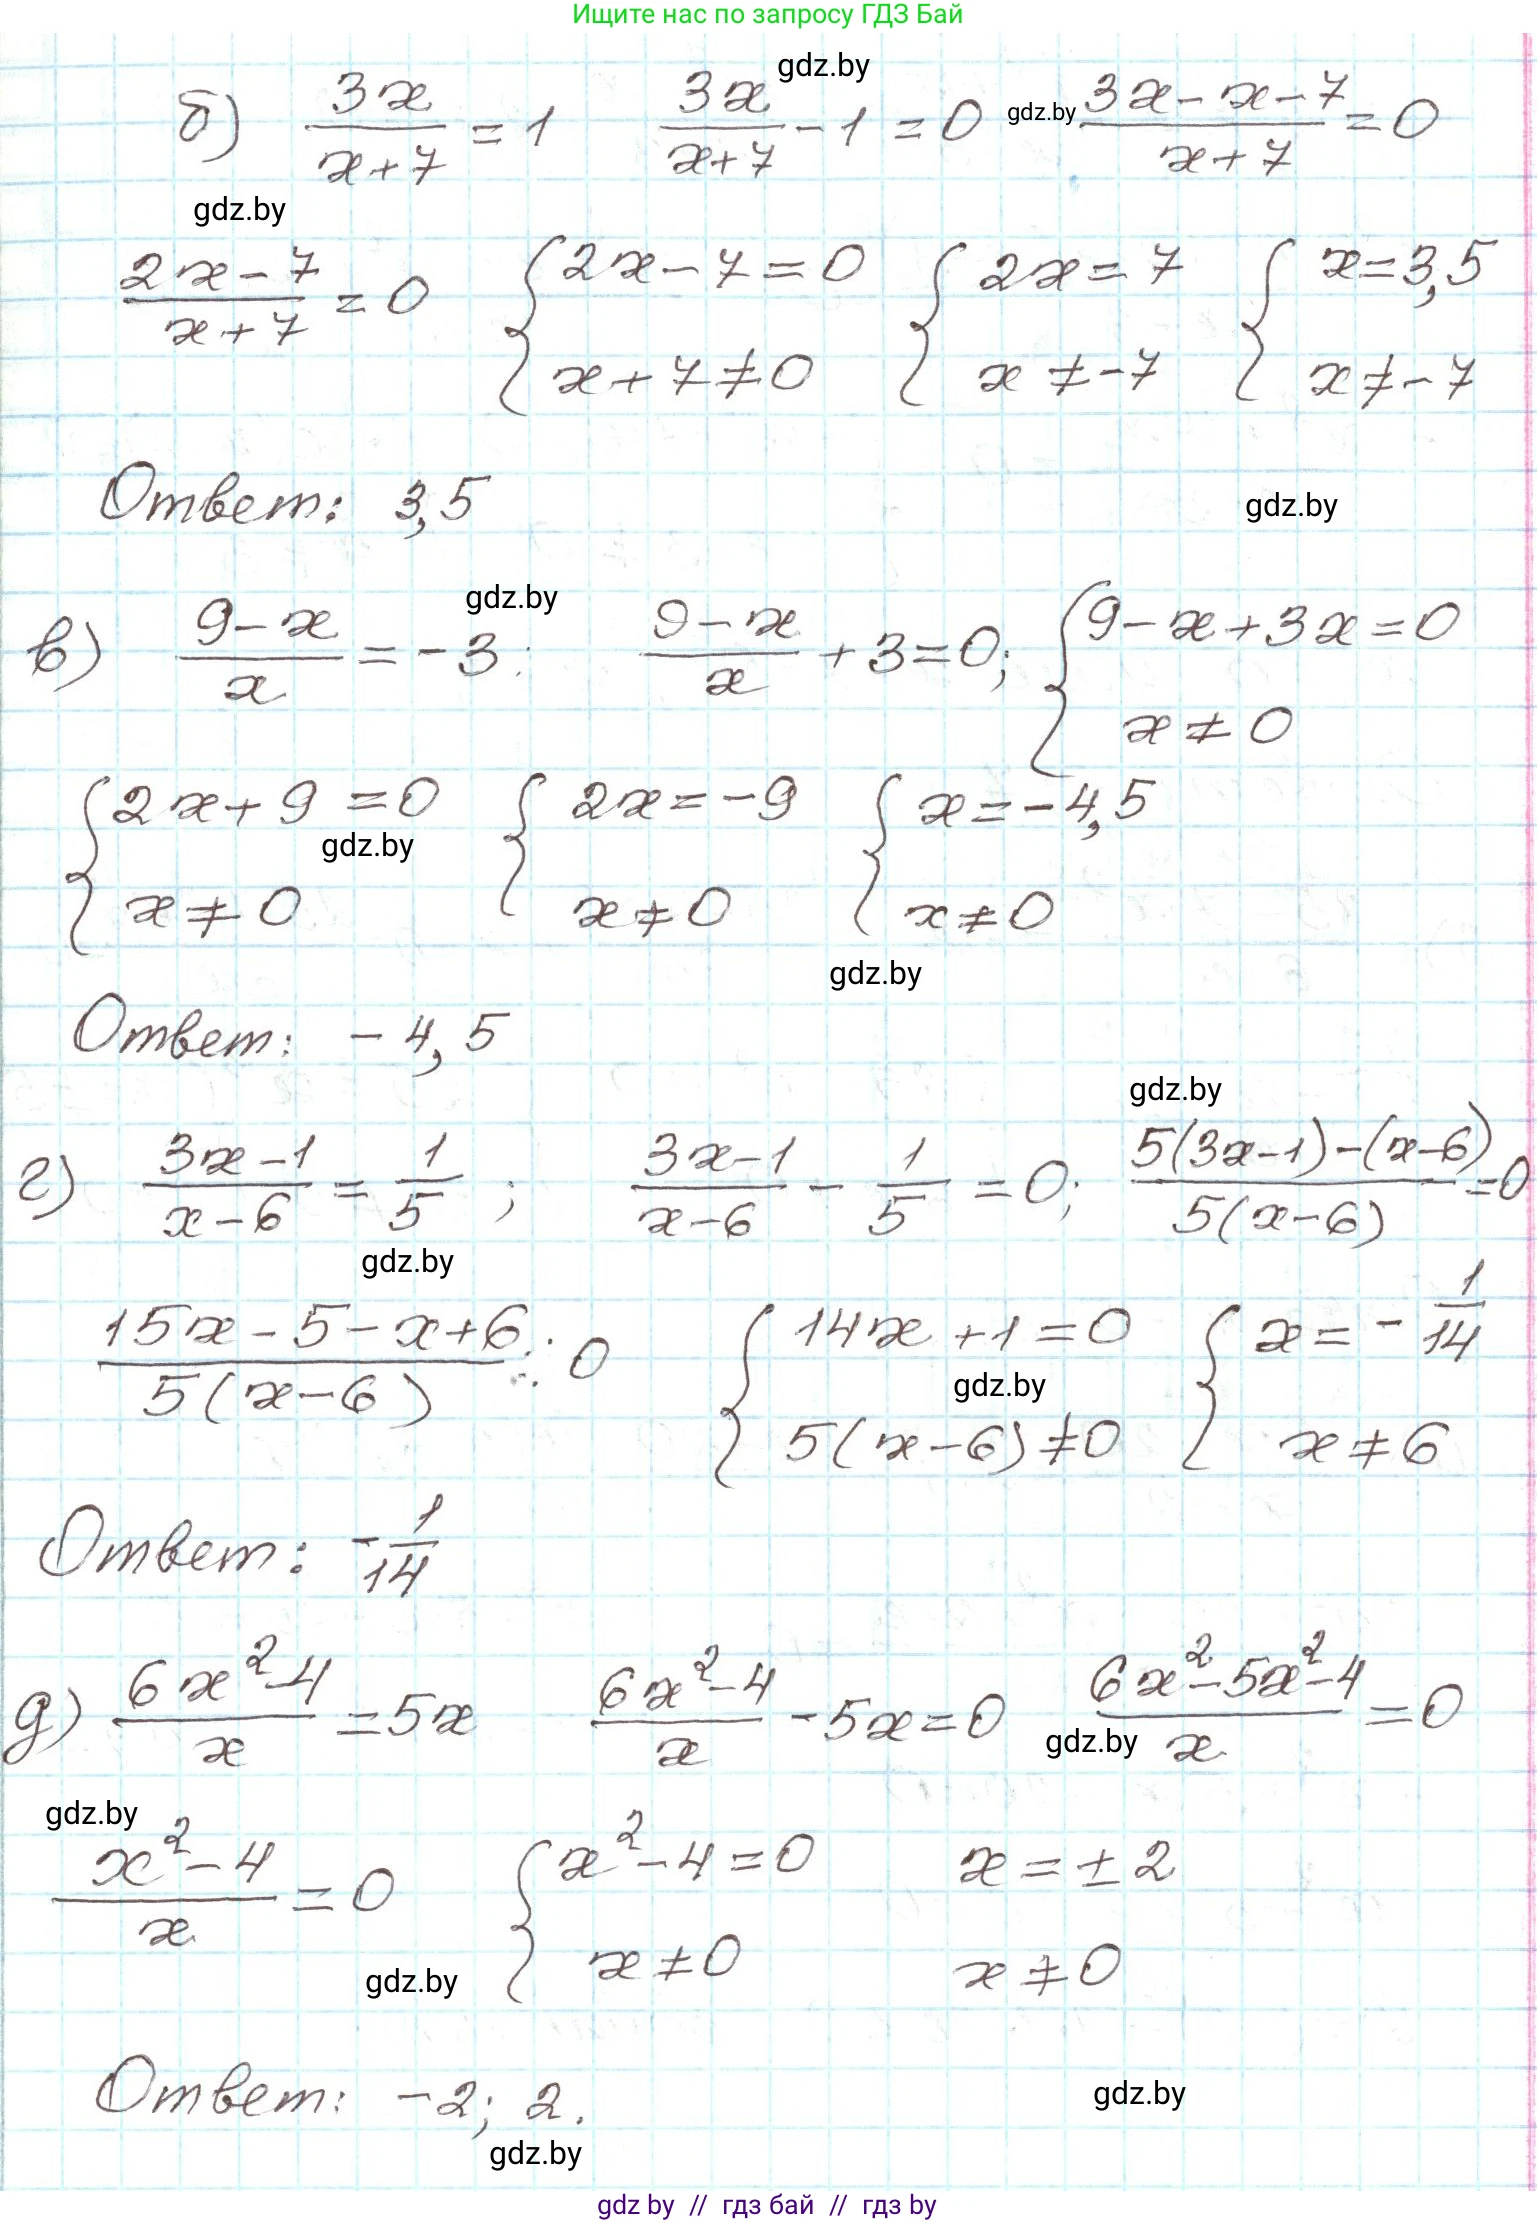 Ищите нас по запросу ГДЗ Бай
gdz.by
б) 3x/(x+7) = 1   3x/(x+7) - 1 = 0   gdz.by   (3x-x-7)/(x+7) = 0
gdz.by
(2x-7)/(x+7) = 0   { 2x-7=0   { 2x=7   { x=3,5
x+7≠0   x≠-7   x≠-7
Ответ: 3,5
gdz.by
gdz.by
в) (9-x)/x = -3;   (9-x)/x + 3 = 0;   { 9-x+3x=0
x≠0
{ 2x+9=0   { 2x=-9   { x=-4,5
gdz.by
x≠0   x≠0   x≠0
gdz.by
Ответ: -4,5
gdz.by
г) (3x-1)/(x-6) = 1/5 ;   (3x-1)/(x-6) - 1/5 = 0;   (5(3x-1)-(x-6))/(5(x-6)) = 0
gdz.by
(15x-5-x+6)/(5(x-6)) = 0   { 14x+1=0   { x=-1/14
gdz.by
5(x-6)≠0   x≠6
Ответ: -1/14
д) (6x²-4)/x = 5x   (6x²-4)/x - 5x = 0   (6x²-5x²-4)/x = 0
gdz.by
gdz.by
(x²-4)/x = 0   { x²-4=0   x=±2
x≠0   x≠0
gdz.by
Ответ: -2; 2.
gdz.by
gdz.by
gdz by // гдз бай // гдз by